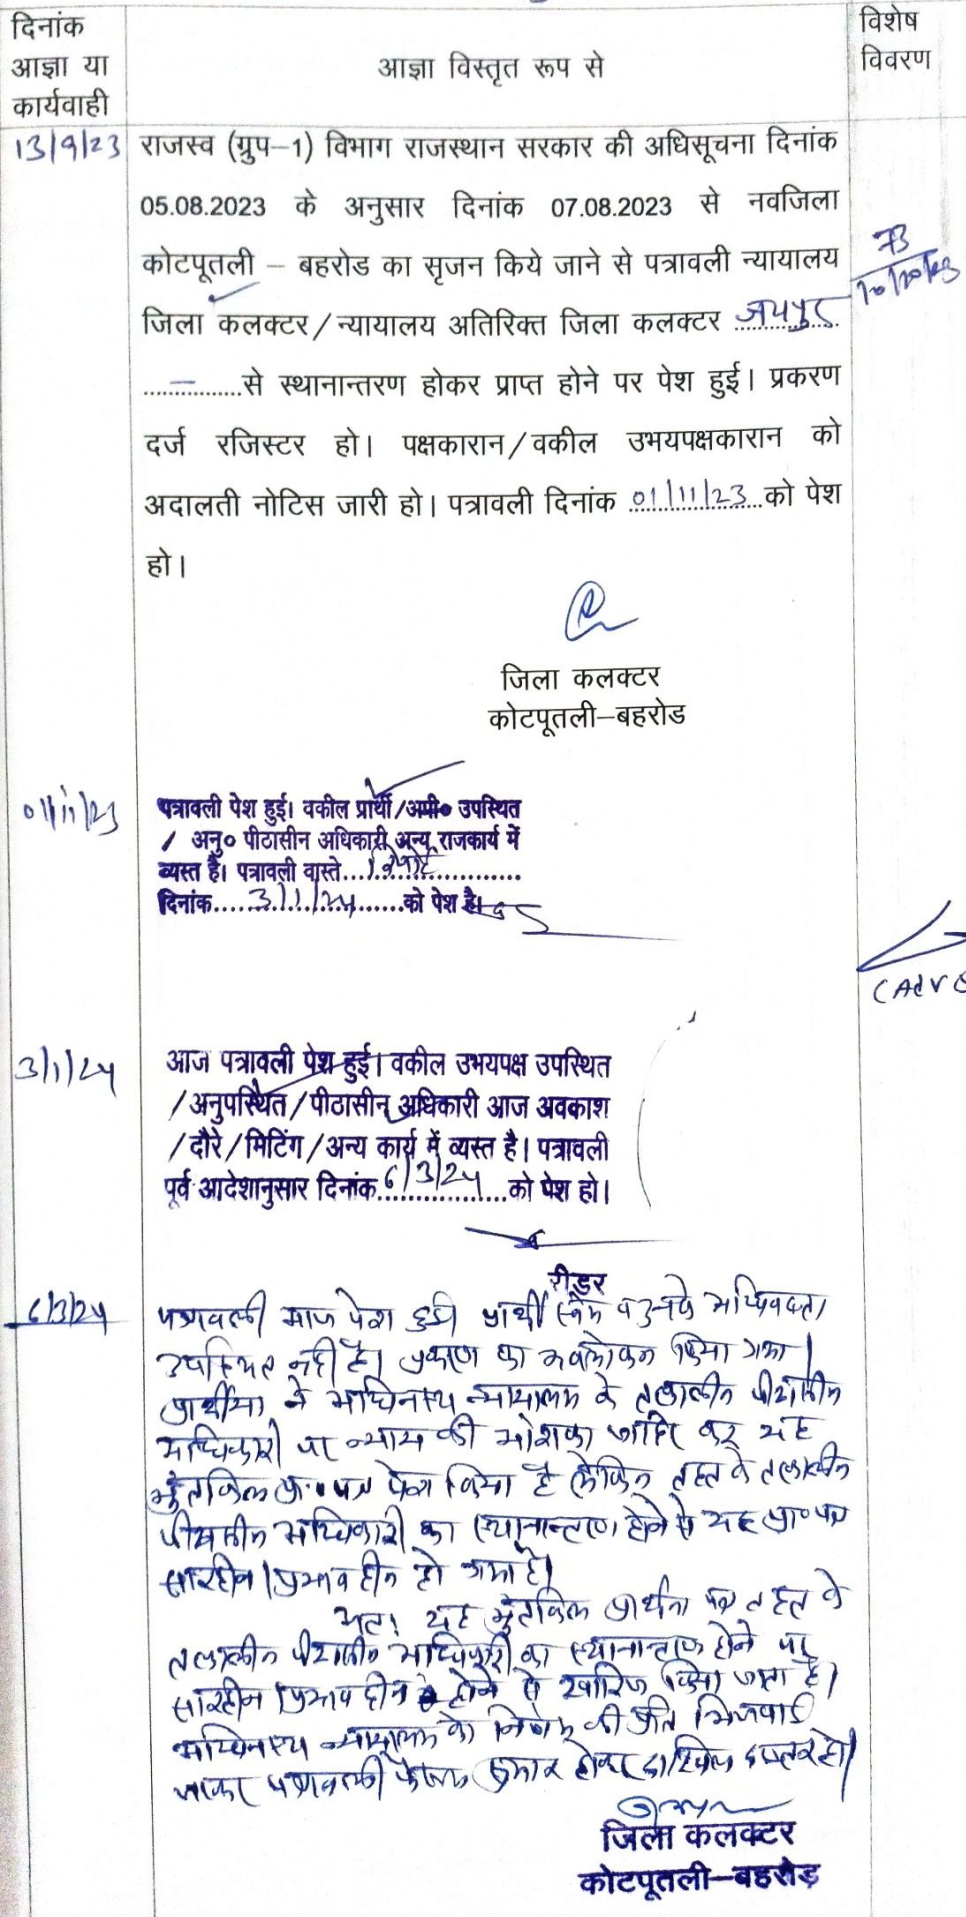 दिनांक
आज्ञा या
कार्यवाही
आज्ञा विस्तृत रूप से
विशेष
विवरण
13/9/23
राजस्व (ग्रुप–1) विभाग राजस्थान सरकार की अधिसूचना दिनांक
05.08.2023 के अनुसार दिनांक 07.08.2023 से नवजिला
कोटपूतली – बहरोड का सृजन किये जाने से पत्रावली न्यायालय
जिला कलक्टर/न्यायालय अतिरिक्त जिला कलक्टर जयपुर
................से स्थानान्तरण होकर प्राप्त होने पर पेश हुई। प्रकरण
दर्ज रजिस्टर हो। पक्षकारान/वकील उभयपक्षकारान को
अदालती नोटिस जारी हो। पत्रावली दिनांक 01/11/23 को पेश
हो।
73
10/10/23
जिला कलक्टर
कोटपूतली–बहरोड
01/11/23
पत्रावली पेश हुई। वकील प्रार्थी/अप्री० उपस्थित
/ अनु० पीठासीन अधिकारी अन्य राजकार्य में
व्यस्त है। पत्रावली वास्ते...
दिनांक.....3/1/24......को पेश है।
3/1/24
आज पत्रावली पेश हुई। वकील उभयपक्ष उपस्थित
/अनुपस्थित/पीठासीन अधिकारी आज अवकाश
/दौरे/मिटिंग/अन्य कार्य में व्यस्त है। पत्रावली
पूर्व आदेशानुसार दिनांक 6/3/24 को पेश हो।
रीडर
6/3/24
पत्रावली आज पेश हुई। प्रार्थी स्वयं व उनके अधिवक्ता
उपस्थित नहीं है। प्रकरण का अवलोकन किया गया।
प्रार्थीया ने अधिनस्थ न्यायालय के तत्कालीन पीठासीन
अधिकारी पर न्याय की आशंका जाहिर कर यह
मुंतकिल प्रा० पत्र पेश किया है लेकिन तहत के तत्कालीन
पीठासीन अधिकारी का स्थानान्तरण होने से यह प्रा० पत्र
सारहीन/प्रभावहीन हो गया है।
अतः यह मुंतकिल प्रार्थना पत्र तहत के
तत्कालीन पीठासीन अधिकारी का स्थानान्तरण होने पर
सारहीन/प्रभावहीन होने से खारिज किया जाता है।
अधिनस्थ न्यायालय को निर्णय की प्रति भिजवाई
जाकर पत्रावली फैसल शुमार होकर दाखिल दफ्तर हो।
जिला कलक्टर
कोटपूतली–बहरोड़